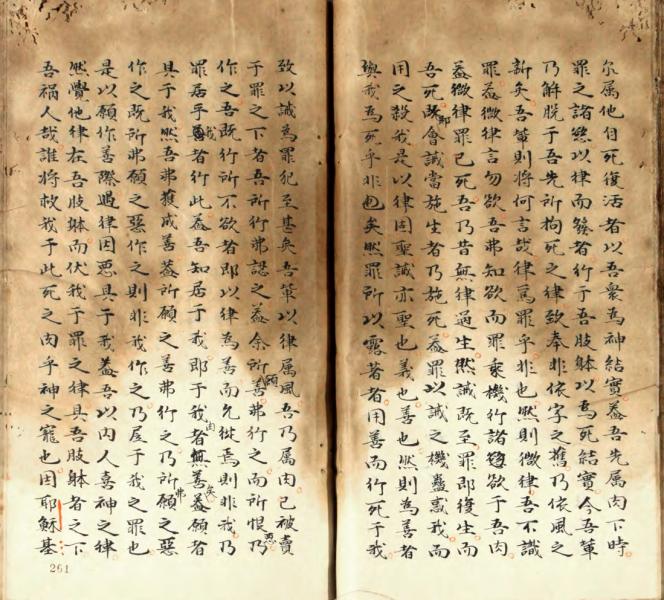 尔属他自死復活者以吾衆為神結實蓋吾先属肉下時
罪之諸慾以律而發者行于吾肢躰以為死結實今吾輩
乃解脫于吾先所拘死之律致奉非依字之舊乃依風之
新矣吾輩則將何言哉律為罪乎非也然則微律吾不識
罪蓋微律言勿欲吾弗知欲而罪乘機行諸欲于吾肉
蓋微律罪已死吾乃昔無律過生然誡既至罪即復生而
吾死既即會誡當施生者乃施死蓋罪以誡之機蠱惑我而
用之殺我是以律固聖誡亦聖也義也善也然則為善者
與我為死乎非也矣然罪所以露著者用善而行死于我
致以誡為罪犯至甚矣吾輩以律属風吾乃属肉已被賣
于罪之下者吾所行弗認之蓋余所願善弗行之而所恨乃惡
作之吾既行所不欲者即以律為善而允從焉則非我乃
罪居乎我者行此蓋吾知居于我即于我肉者無善矣蓋願者
具于我然吾弗獲成善蓋所願之善弗行之乃所願之惡弗
作之既所弗願之惡作之則非我作之乃居于我之罪也
是以願作善際遇律因惡具于我蓋吾以內人喜神之律
然覺他律在吾肢躰而伏我于罪之律具吾肢躰者之下
吾禍人哉誰將救我于此死之肉乎神之寵也因耶穌基
261